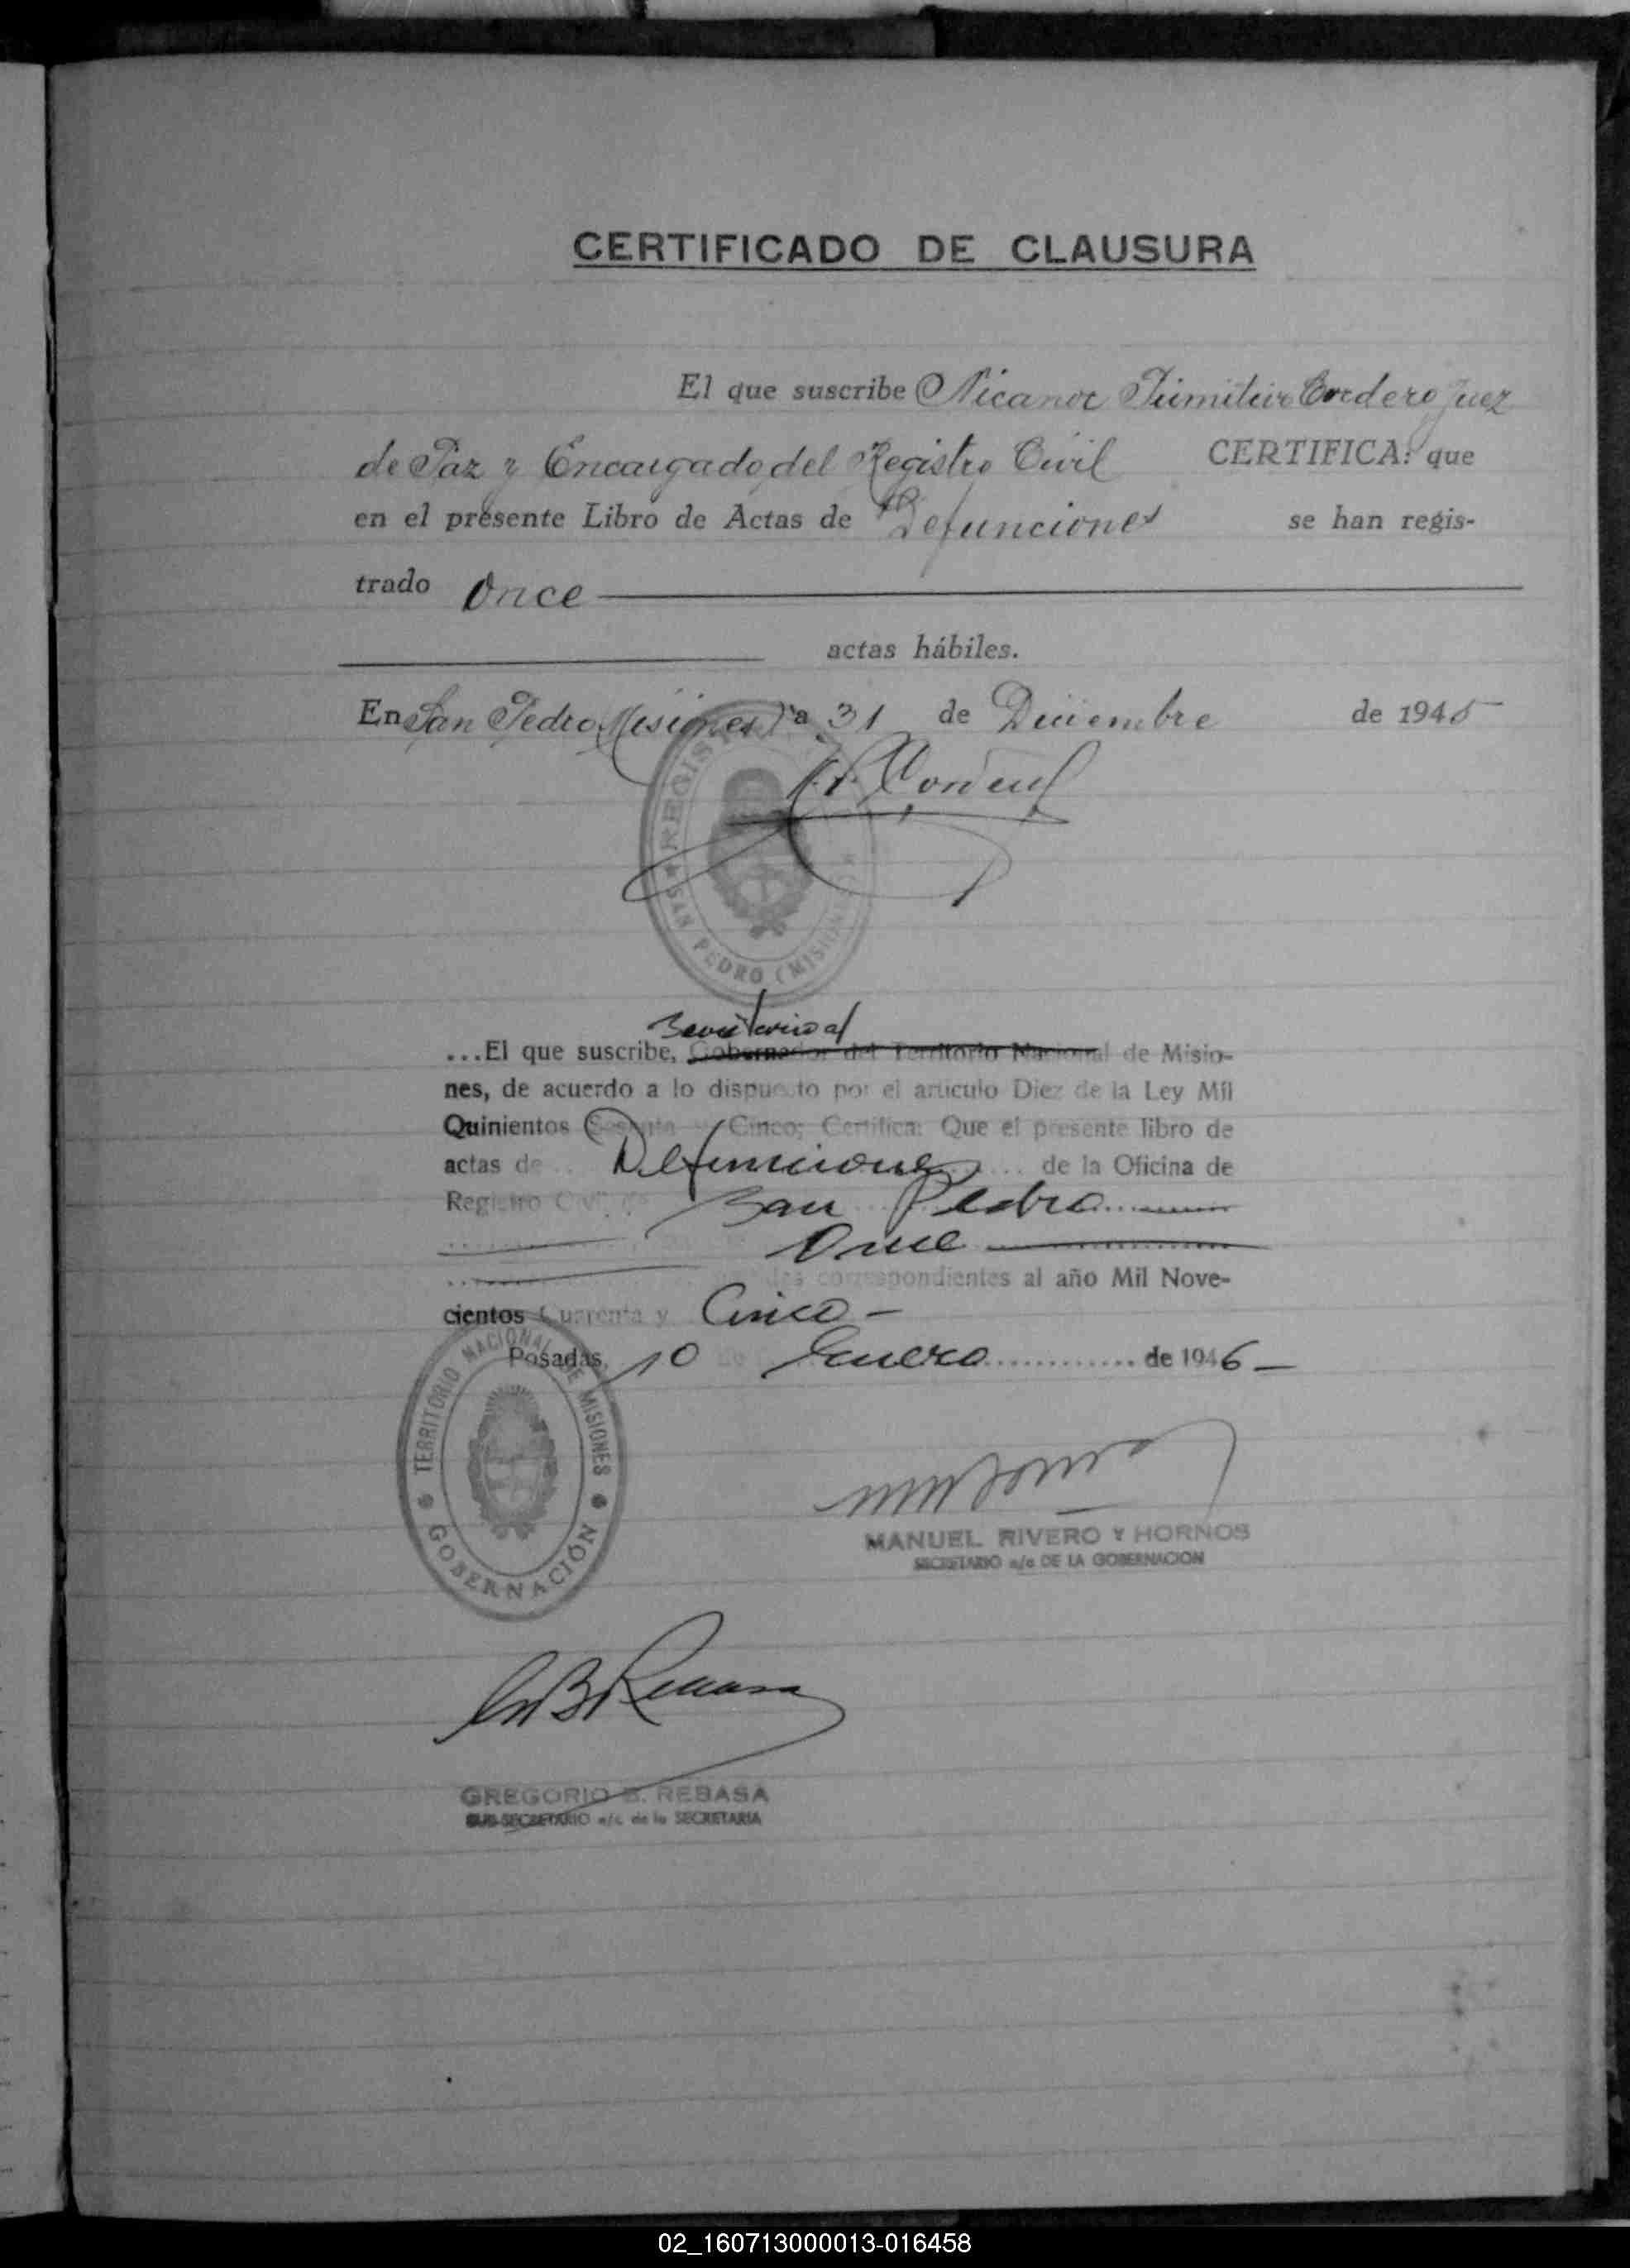 CERTIFICADO DE CLAUSURA
El que suscribe Nicanor Primitivo Cordero Juez
de Paz y Encargado del Registro Civil CERTIFICA: que
en el presente Libro de Actas de Defunciones se han regis-
trado Once
actas hábiles.
En San Pedro (Misiones) a 31 de Diciembre de 1945
REGIS
SAN PEDRO (MISIONES)
...El que suscribe, Gobernador del Territorio Nacional de Misio-
nes, de acuerdo a lo dispuesto por el artículo Diez de la Ley Mil
Quinientos Sesenta y Cinco; Certifica: Que el presente libro de
actas de Defunciones de la Oficina de
Registro Civil de San Pedro
Once
correspondientes al año Mil Nove-
cientos Cuarenta y Cinco -
Posadas, 10 de Enero de 1946 -
TERRITORIO NACIONAL DE MISIONES
GOBERNACIÓN
MANUEL RIVERO Y HORNOS
SECRETARIO a/c DE LA GOBERNACION
GREGORIO B. REBASA
SUB-SECRETARIO a/c de la SECRETARIA
02_160713000013-016458